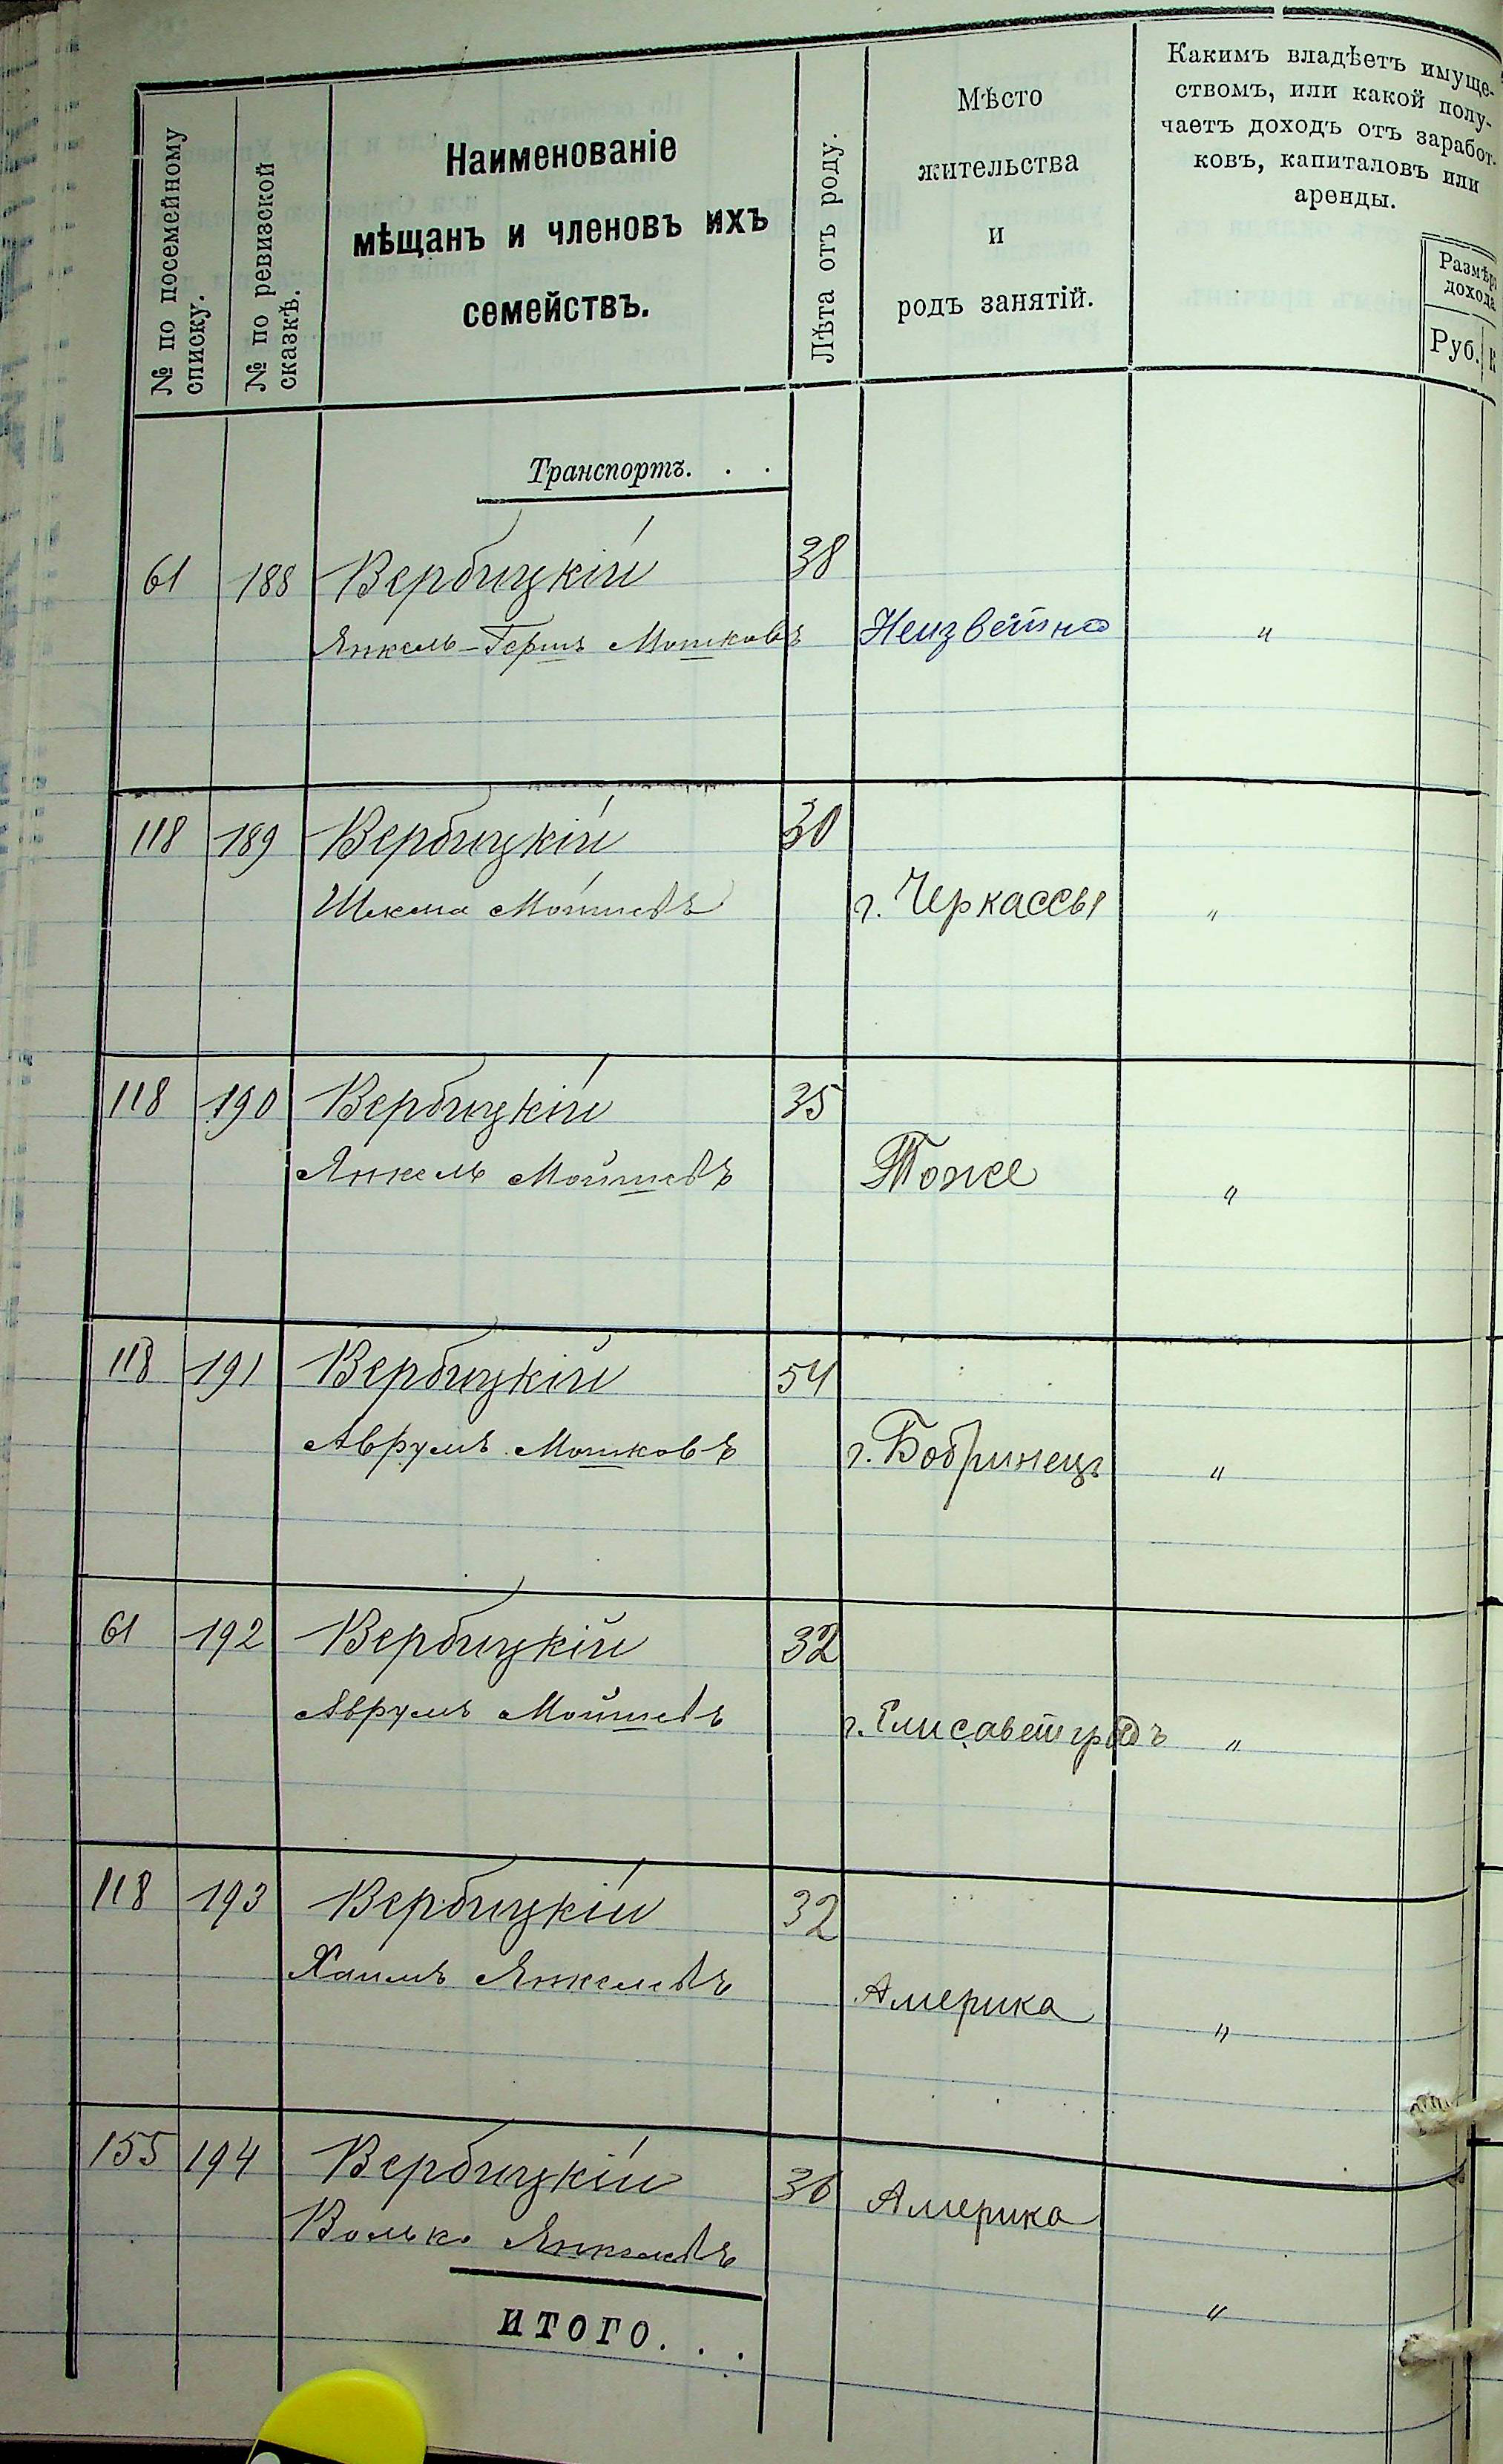 № по посемейному
списку.
№ по ревизской
сказкѣ.
Наименованіе
мѣщанъ и членовъ ихъ
семействъ.
Лѣта отъ роду.
Мѣсто
жительства
и
родъ занятій.
Какимъ владѣетъ имуще-
ствомъ, или какой полу-
чаетъ доходъ отъ заработ-
ковъ, капиталовъ или
аренды.
Размѣръ
дохода
Руб.
К
Транспортъ. . .
61 188 Вербицкій 38
Янкель-Гершъ Мошковъ Неизвѣстно "
118 189 Вербицкій 30
Шлема Мойшевъ г. Черкассы "
118 190 Вербицкій 35
Янкель Мойшевъ Тоже "
118 191 Вербицкій 54
Аврумъ Мошковъ г. Бобринецъ "
61 192 Вербицкій 32
Аврумъ Мойшевъ г. Елисаветградъ "
118 193 Вербицкій 32
Хаимъ Янкелевъ Америка "
155 194 Вербицкій 36 Америка
Волько Янкелевъ "
ИТОГО. . .